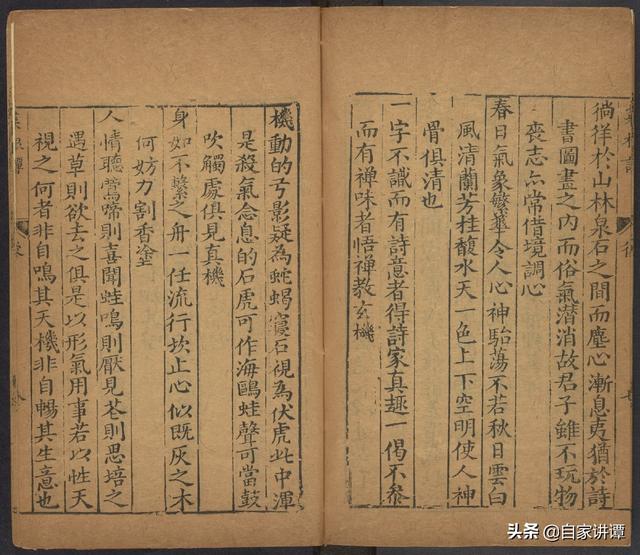 徜徉於山林泉石之間而塵心漸息夷猶於詩
書圖畫之内而俗氣潛消故君子雖不玩物
喪志亦常借境調心
春日氣象繁華令人心神駘蕩不若秋日雲白
風清蘭芳桂馥水天一色上下空明使人神
骨俱清也
一字不識而有詩意者得詩家真趣一偈不叅
而有禪味者悟禪教玄機
機動的弓影疑為蛇蝎寢石視為伏虎此中渾
是殺氣念息的石虎可作海鷗蛙聲可當鼓
吹觸處俱見真機
身如不繫之舟一任流行坎止心似既灰之木
何妨刀割香塗
人情聽鶯啼則喜聞蛙鳴則厭見花則思培之
遇草則欲去之俱是以形氣用事若以性天
視之何者非自鳴其天機非自暢其生意也
头条 @自家讲谭